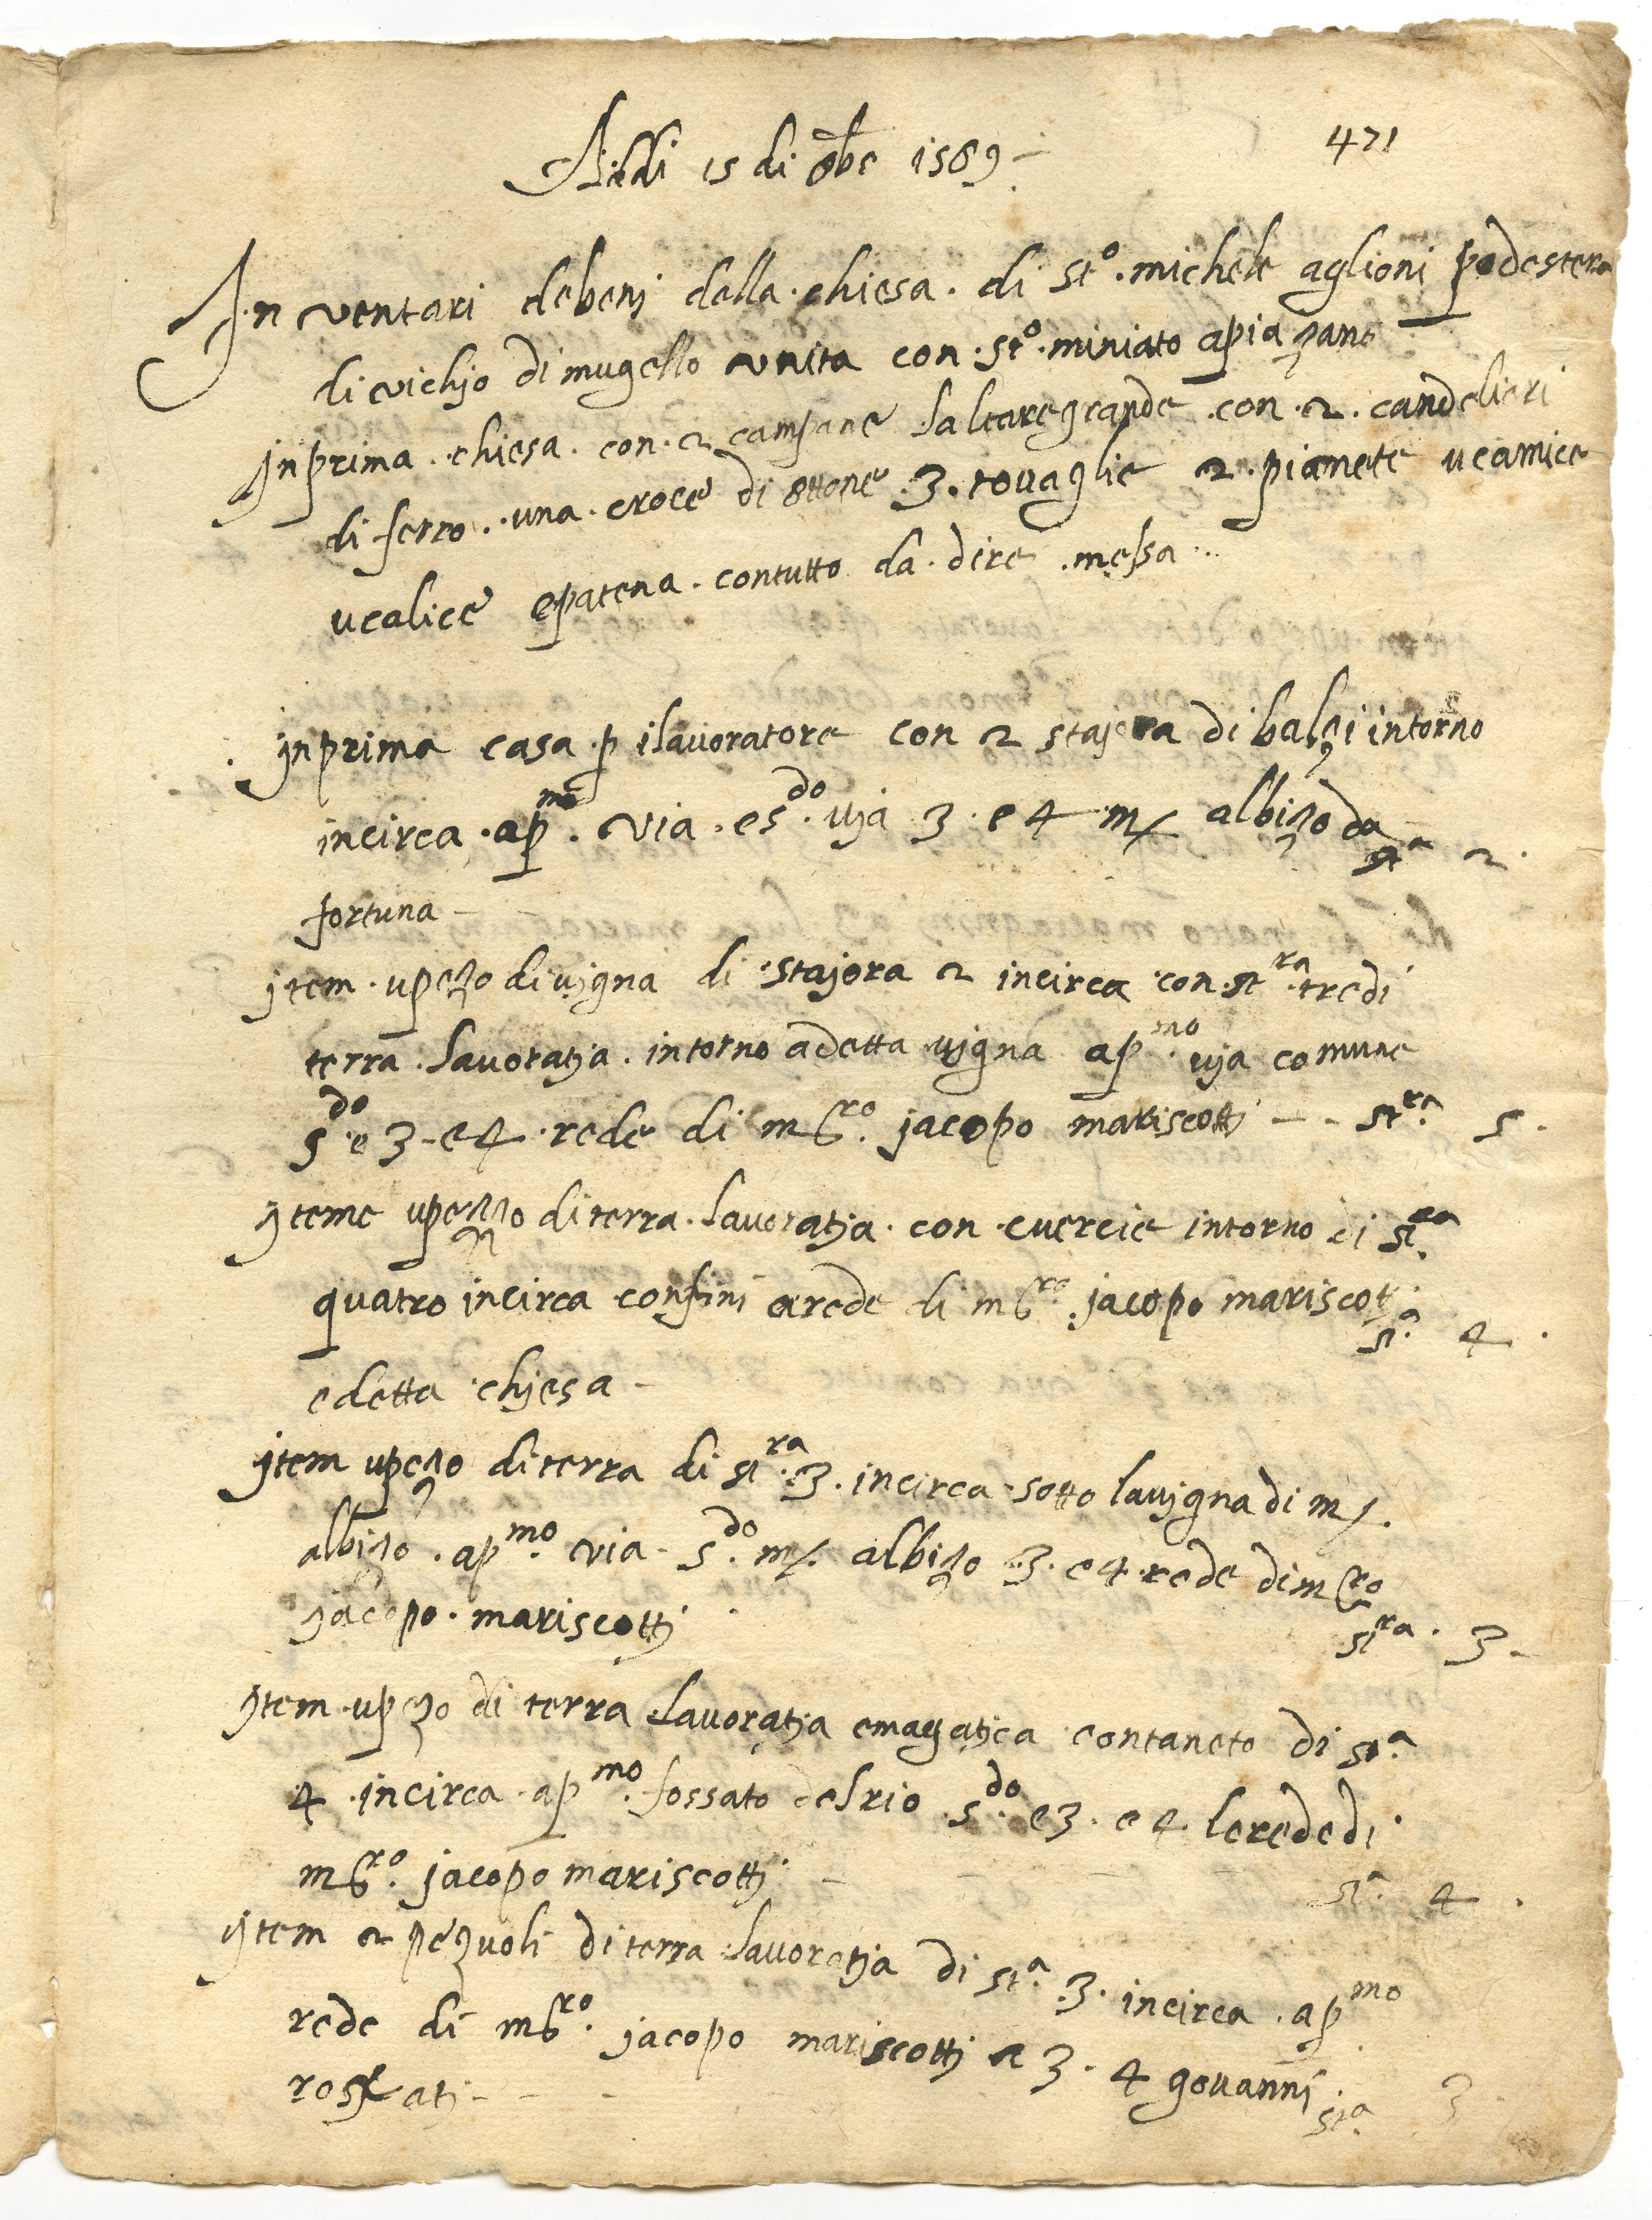 471
Addi 15 di 8bre 1589
Inventari debenj della chiesa di sto. michele aglioni podesteria
di vichjo di mugello unita con sto. miniato apiazano
Inprima chiesa con 2 campane laltare grande con 2 candelieri
di ferro una croce di ottone 3 tovaglie 2 pianete ucamice
ucalice epatena contutto da dire messa
Inprima casa p ilavoratore con 2 stajora di balzi intorno
incirca apmo. via esdo. vja 3 e 4 m/ albizo da
fortuna sta 2
jtem upezo di vigna di stajora 2 incirca con stra. tre di
terra lavoratja intorno adetta vigna apmo. vja comune
sdo e 3 e 4 rede di mro. jacopo mariscotti stra. 5
jteme upezzo di terra lavoratja con quercie intorno di stra
quatro incirca confini arede di mro. jacopo mariscoti
edetta chjesa sta. 4
jtem upezo di terra di stra. 3 incirca sotto lavigna di m/.
albizo apmo. via sdo. m/. albizo 3 e 4 rede di mro
jacopo mariscottj stra. 3
jtem upezo di terra lavoratja contaneto di sta.
4 incirca apmo. fossato del rio sdo. e 3 e 4 lerede di
mro. jacopo mariscottj sta. 4
jtem 2 pezuoli di terra lavoratja di sta. 3 incirca apmo
rede di mro. jacopo mariscottj e 3 4 govanni
sta. 3